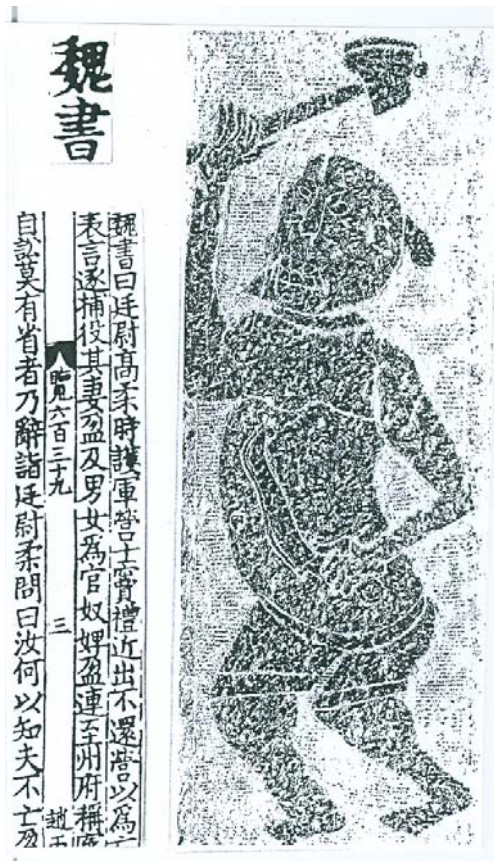 魏書
魏書曰廷尉髙柔時護軍營士竇禮近出不還營以爲亡
表言逐捕役其妻盈及男女爲官奴婢盈連至州府稱
覽六百三十九 三 趙
自訟莫有省者乃辭詣廷尉柔問曰汝何以知夫不亡盈